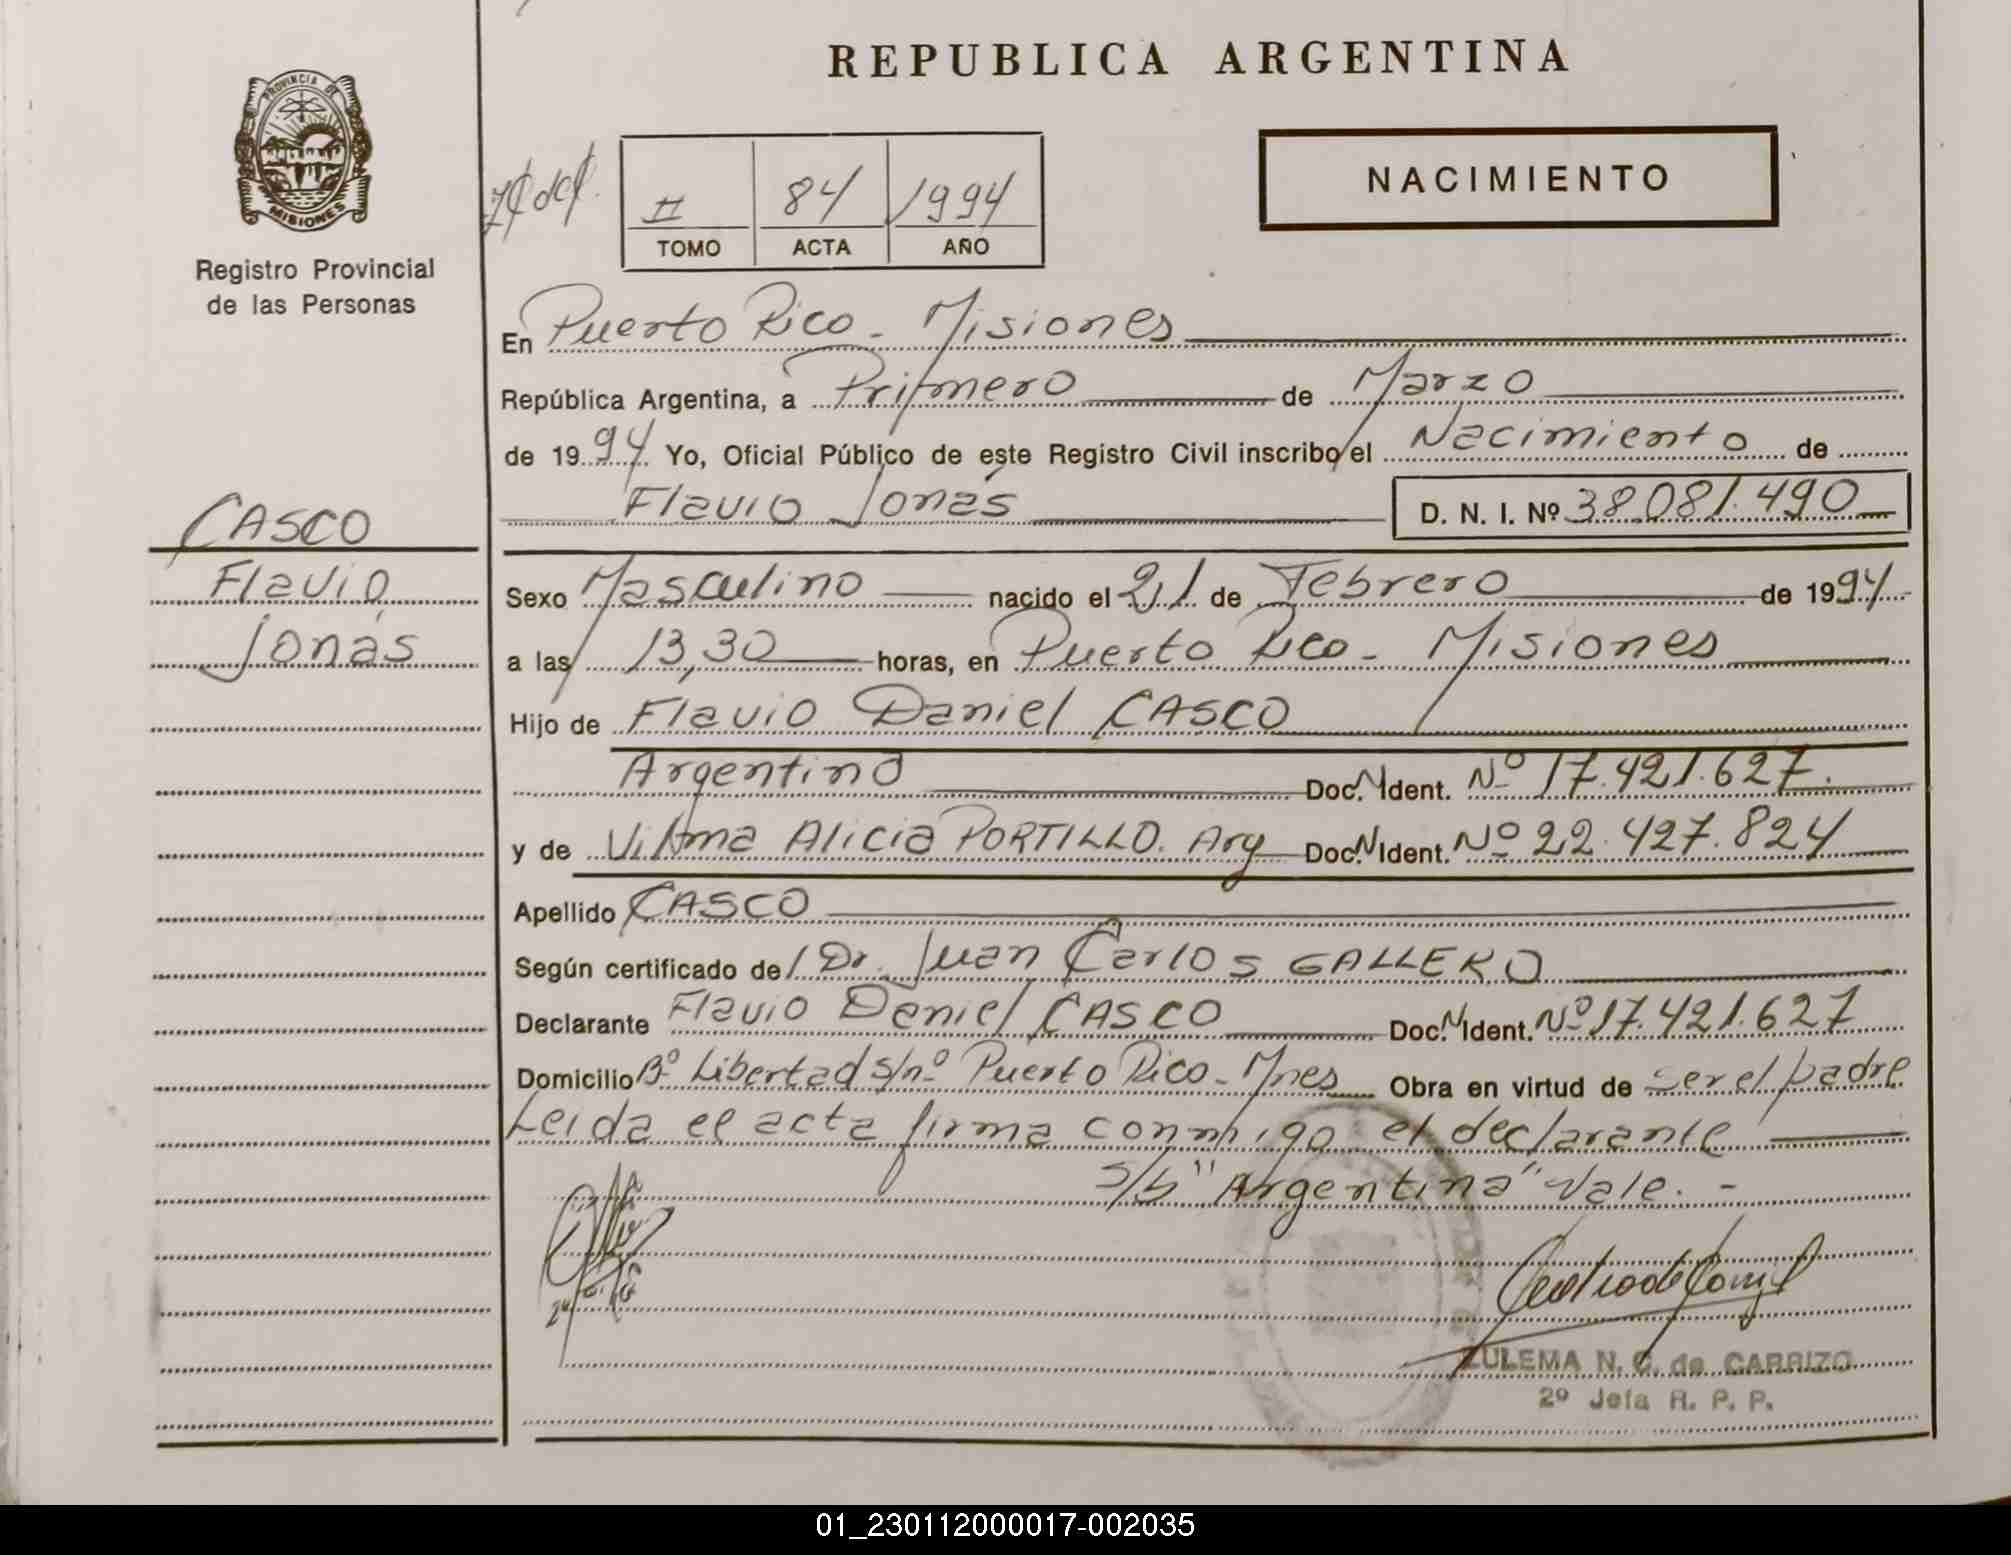 REPUBLICA ARGENTINA
PROVINCIA DE
MISIONES
Registro Provincial
de las Personas
II 84 1994
TOMO ACTA AÑO
NACIMIENTO
En Puerto Rico - Misiones
República Argentina, a Primero de Marzo
de 1994 Yo, Oficial Público de este Registro Civil inscribo el Nacimiento de
Flavio Jonás D. N. I. Nº 38.081.490
CASCO
Flavio
Jonás
Sexo Masculino nacido el 21 de Febrero de 1994
a las 13,30 horas, en Puerto Rico - Misiones
Hijo de Flavio Daniel CASCO
Argentino Doc. N Ident. Nº 17.421.627.
y de Vilma Alicia PORTILLO. Arg Doc. N Ident. Nº 22.427.824
Apellido CASCO
Según certificado de Dr. Juan Carlos GALLERO
Declarante Flavio Daniel CASCO Doc. N Ident. Nº 17.421.627
Domicilio Bº Libertad s/nº Puerto Rico - Mnes Obra en virtud de ser el padre
Leida el acta firma conmigo el declarante
S/b "Argentina" Vale. -
ZULEMA N. C. de CARRIZO
2º Jefa R. P. P.
01_230112000017-002035